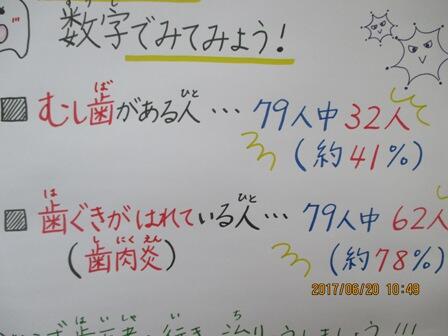 数字でみてみよう!
むし歯がある人… 79人中32人
(約41%)
歯ぐきがはれている人… 79人中62人
(歯肉炎) (約78%)
2017/06/20 10:49